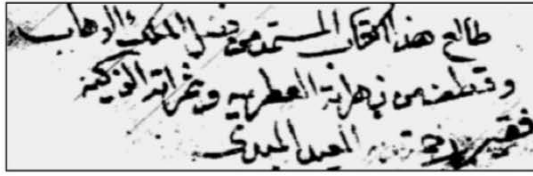 طالع هذا الكتاب المستمد من فضل الملك الوهاب
وقتطف من زهراته العطريه وثمراته الزكيه
فقير العبد المبدى